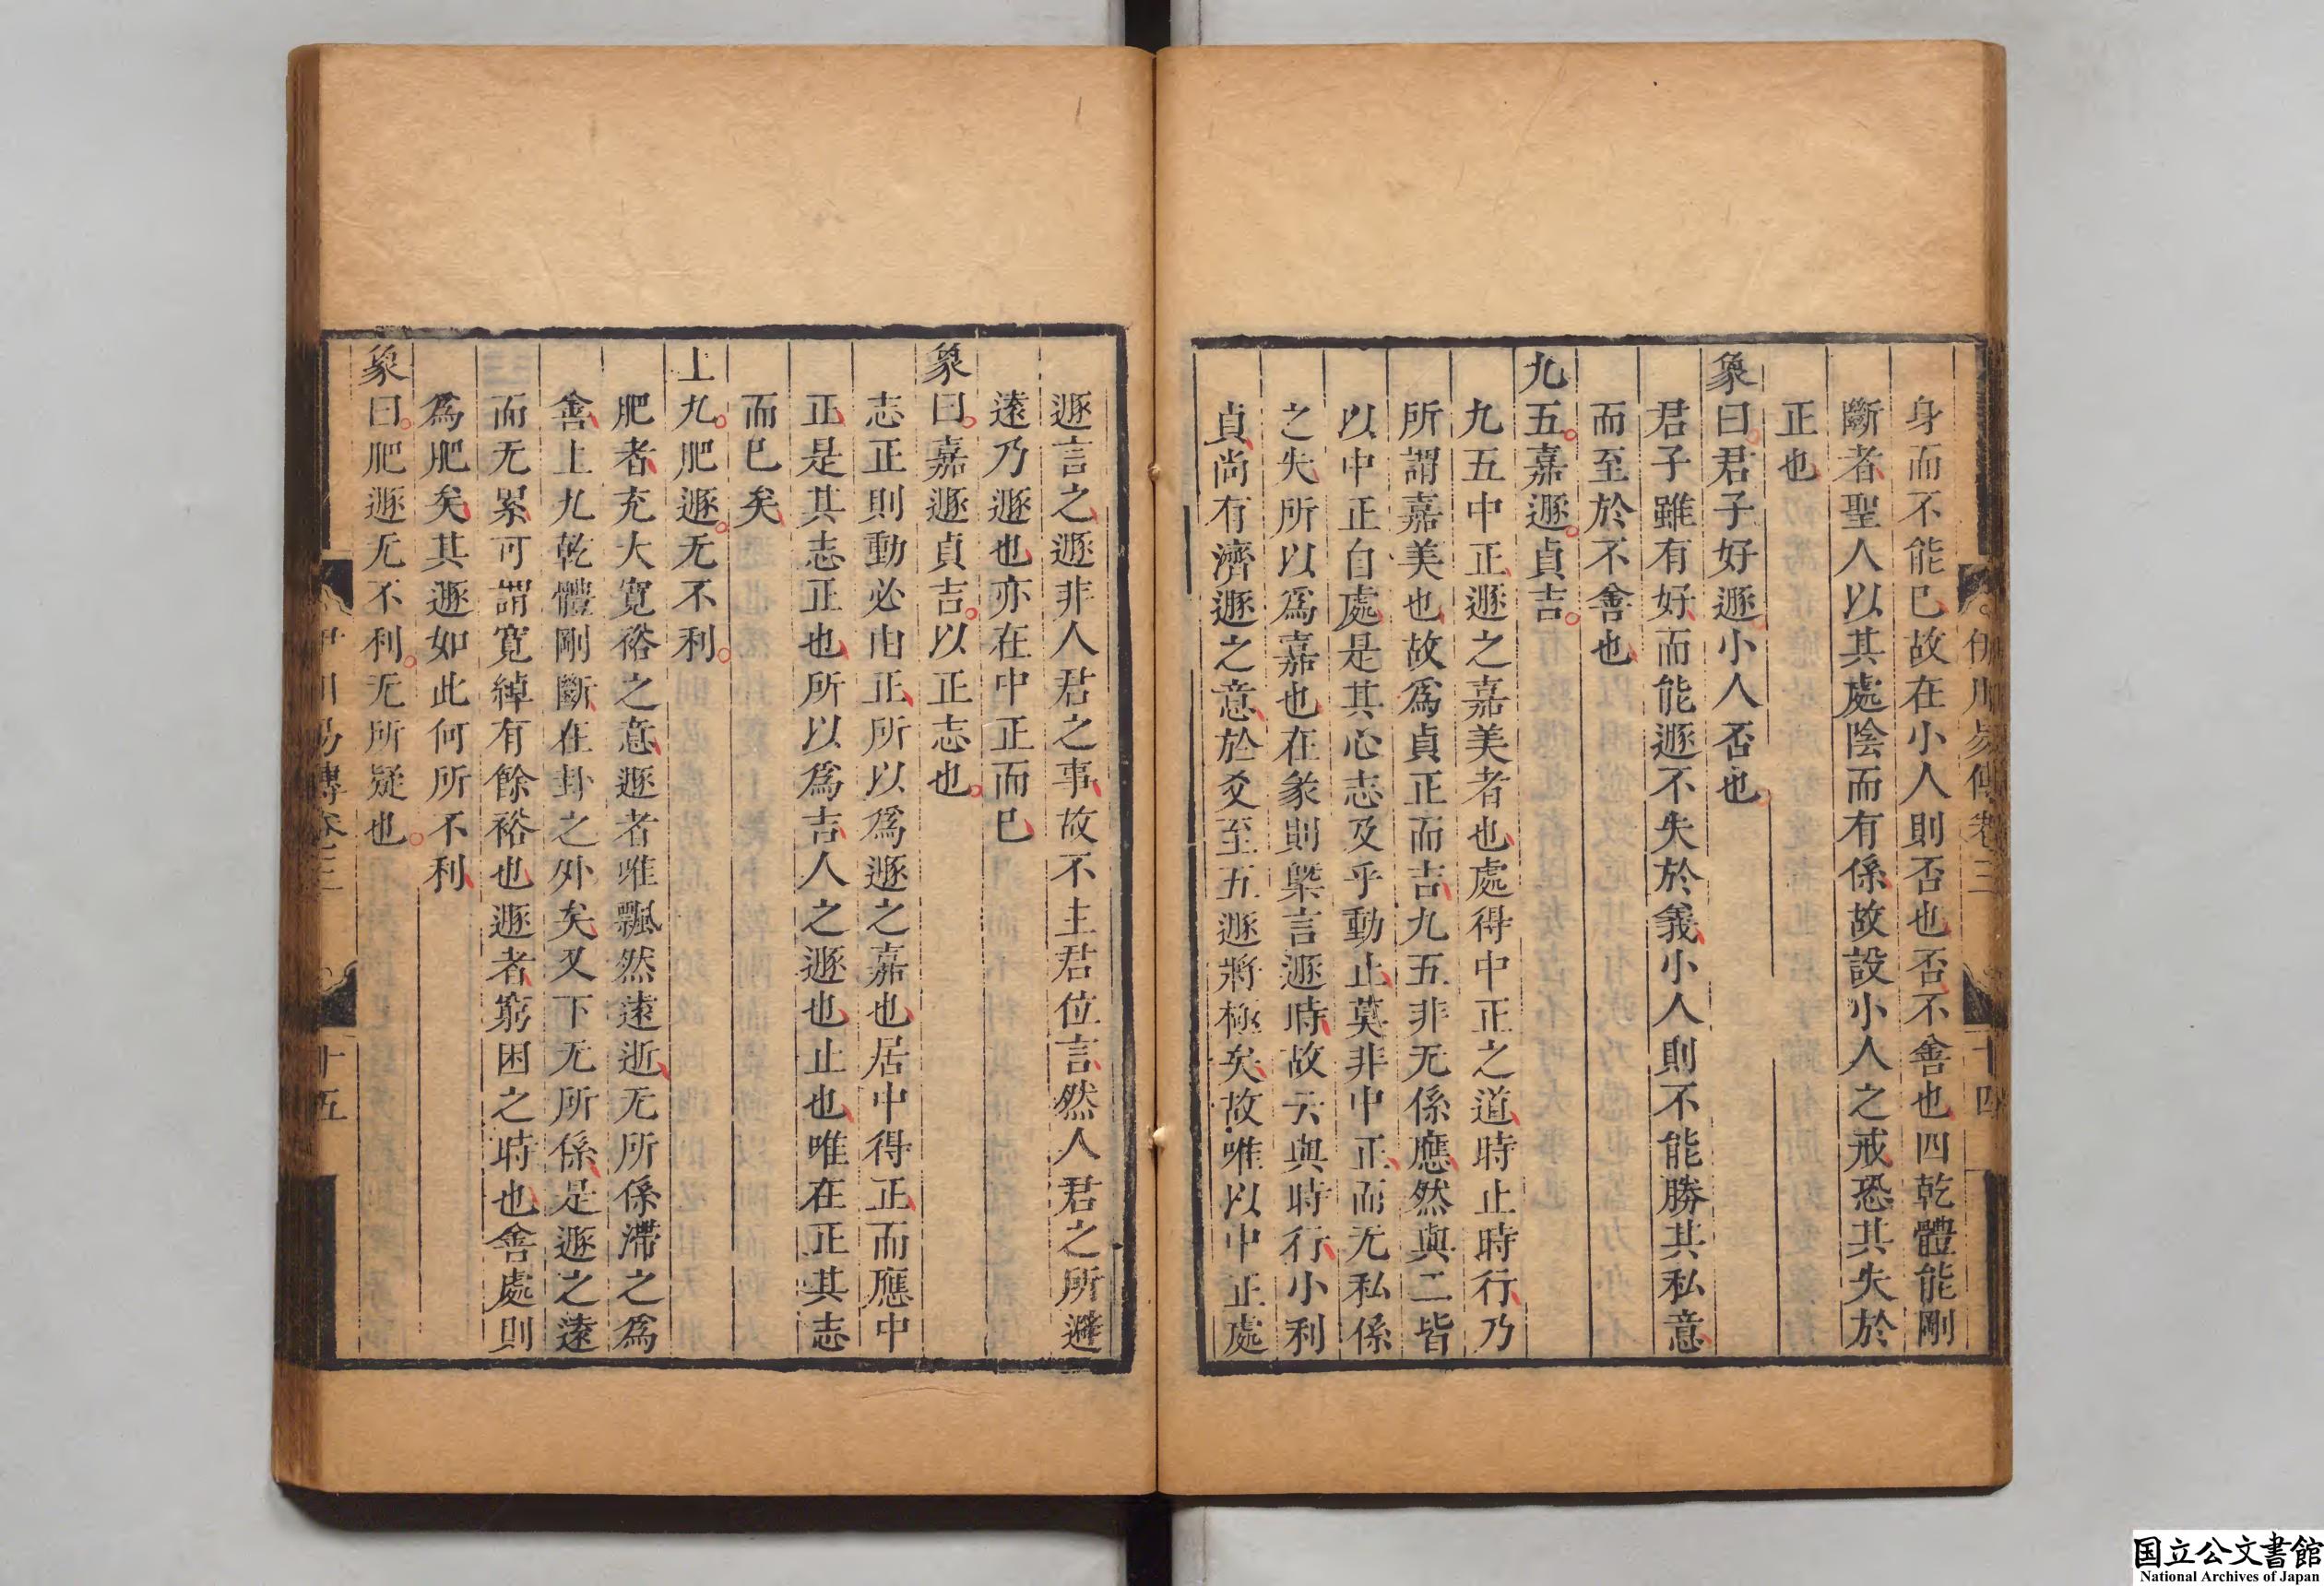 身而不能已故在小人則否也否不舍也四乾體能剛
斷者聖人以其處陰而有係故設小人之戒恐其失於
正也
象曰君子好遯小人否也
君子雖有好而能遯不失於義小人則不能勝其私意
而至於不舍也
九五嘉遯貞吉
九五中正遯之嘉美者也處得中正之道時止時行乃
所謂嘉美也故爲貞正而吉九五非无係應然與二皆
以中正自處是其心志及乎動止莫非中正而无私係
之失所以爲嘉也在彖則槩言遯時故云與時行小利
貞尚有濟遯之意於爻至五遯將極矣故唯以中正處
伊川易傳卷三
十四
遯言之遯非人君之事故不主君位言然人君之所避
遠乃遯也亦在中正而已
象曰嘉遯貞吉以正志也
志正則動必由正所以爲遯之嘉也居中得正而應中
正是其志正也所以爲吉人之遯也止也唯在正其志
而已矣
上九肥遯无不利
肥者充大寬裕之意遯者唯飄然遠逝无所係滯之爲
善上九乾體剛斷在卦之外矣又下无所係是遯之遠
而无累可謂寬綽有餘裕也遯者窮困之時也善處則
爲肥矣其遯如此何所不利
象曰肥遯无不利无所疑也
伊川易傳卷三
十五
国立公文書館
National Archives of Japan